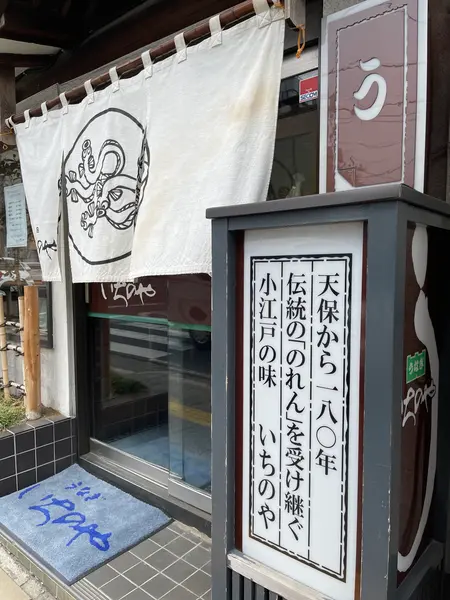 う
天保から一八〇年
伝統の「のれん」を受け継ぐ
小江戸の味　いちのや
いちのや
うなぎ
いちのや
SECOM